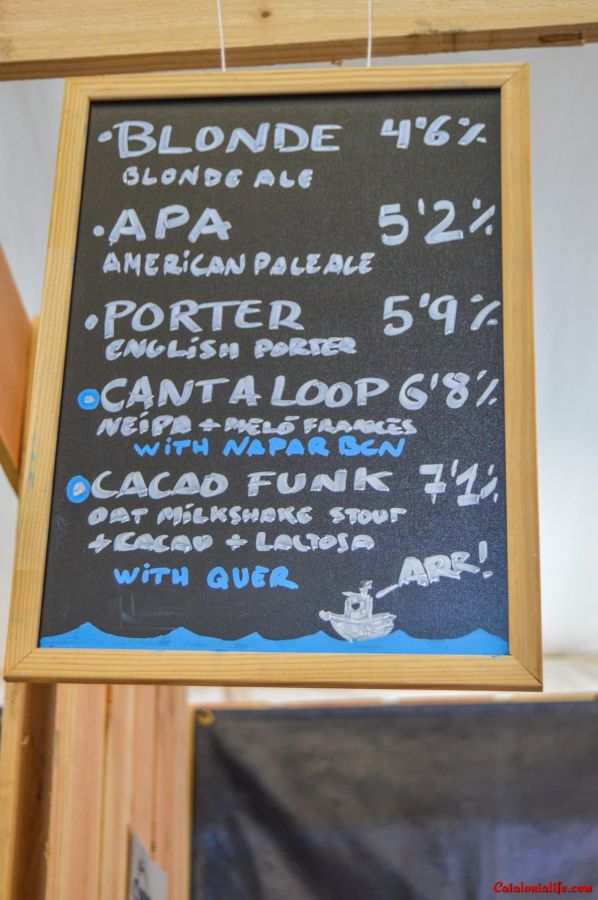 • BLONDE 4'6%
BLONDE ALE
• APA 5'2%
AMERICAN PALE ALE
• PORTER 5'9%
ENGLISH PORTER
CANTALOOP 6'8%
NEIPA + MELÓ FRANCES
WITH NAPAR BCN
CACAO FUNK 7'1%
OAT MILKSHAKE STOUT
+ CACAO + LACTOSA
WITH QUER
ARR!
Catalonialife.com